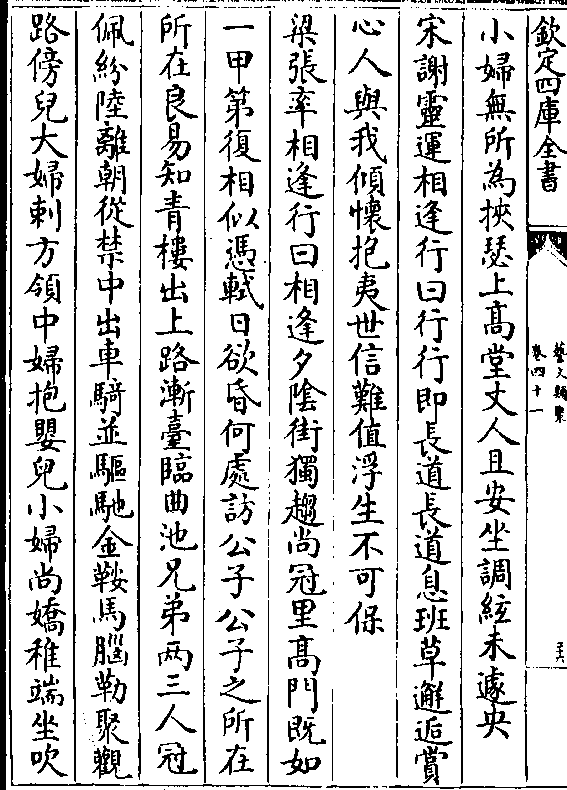 欽定四庫全書
藝文類聚
卷四十一
小婦無所為挾瑟上髙堂丈人且安坐調絃未遽央
宋謝靈運相逢行曰行行即長道長道息班草邂逅賞
心人與我傾懷抱夷世信難值浮生不可保
梁張率相逢行曰相逢夕陰街獨趨尚冠里髙門既如
一甲第復相似憑軾日欲昏何處訪公子公子之所在
所在良易知青樓出上路漸臺臨曲池兄弟兩三人冠
佩紛陸離朝從禁中出車騎並驅馳金鞍馬腦勒聚觀
路傍兒大婦刺方領中婦抱嬰兒小婦尚嬌稚端坐吹